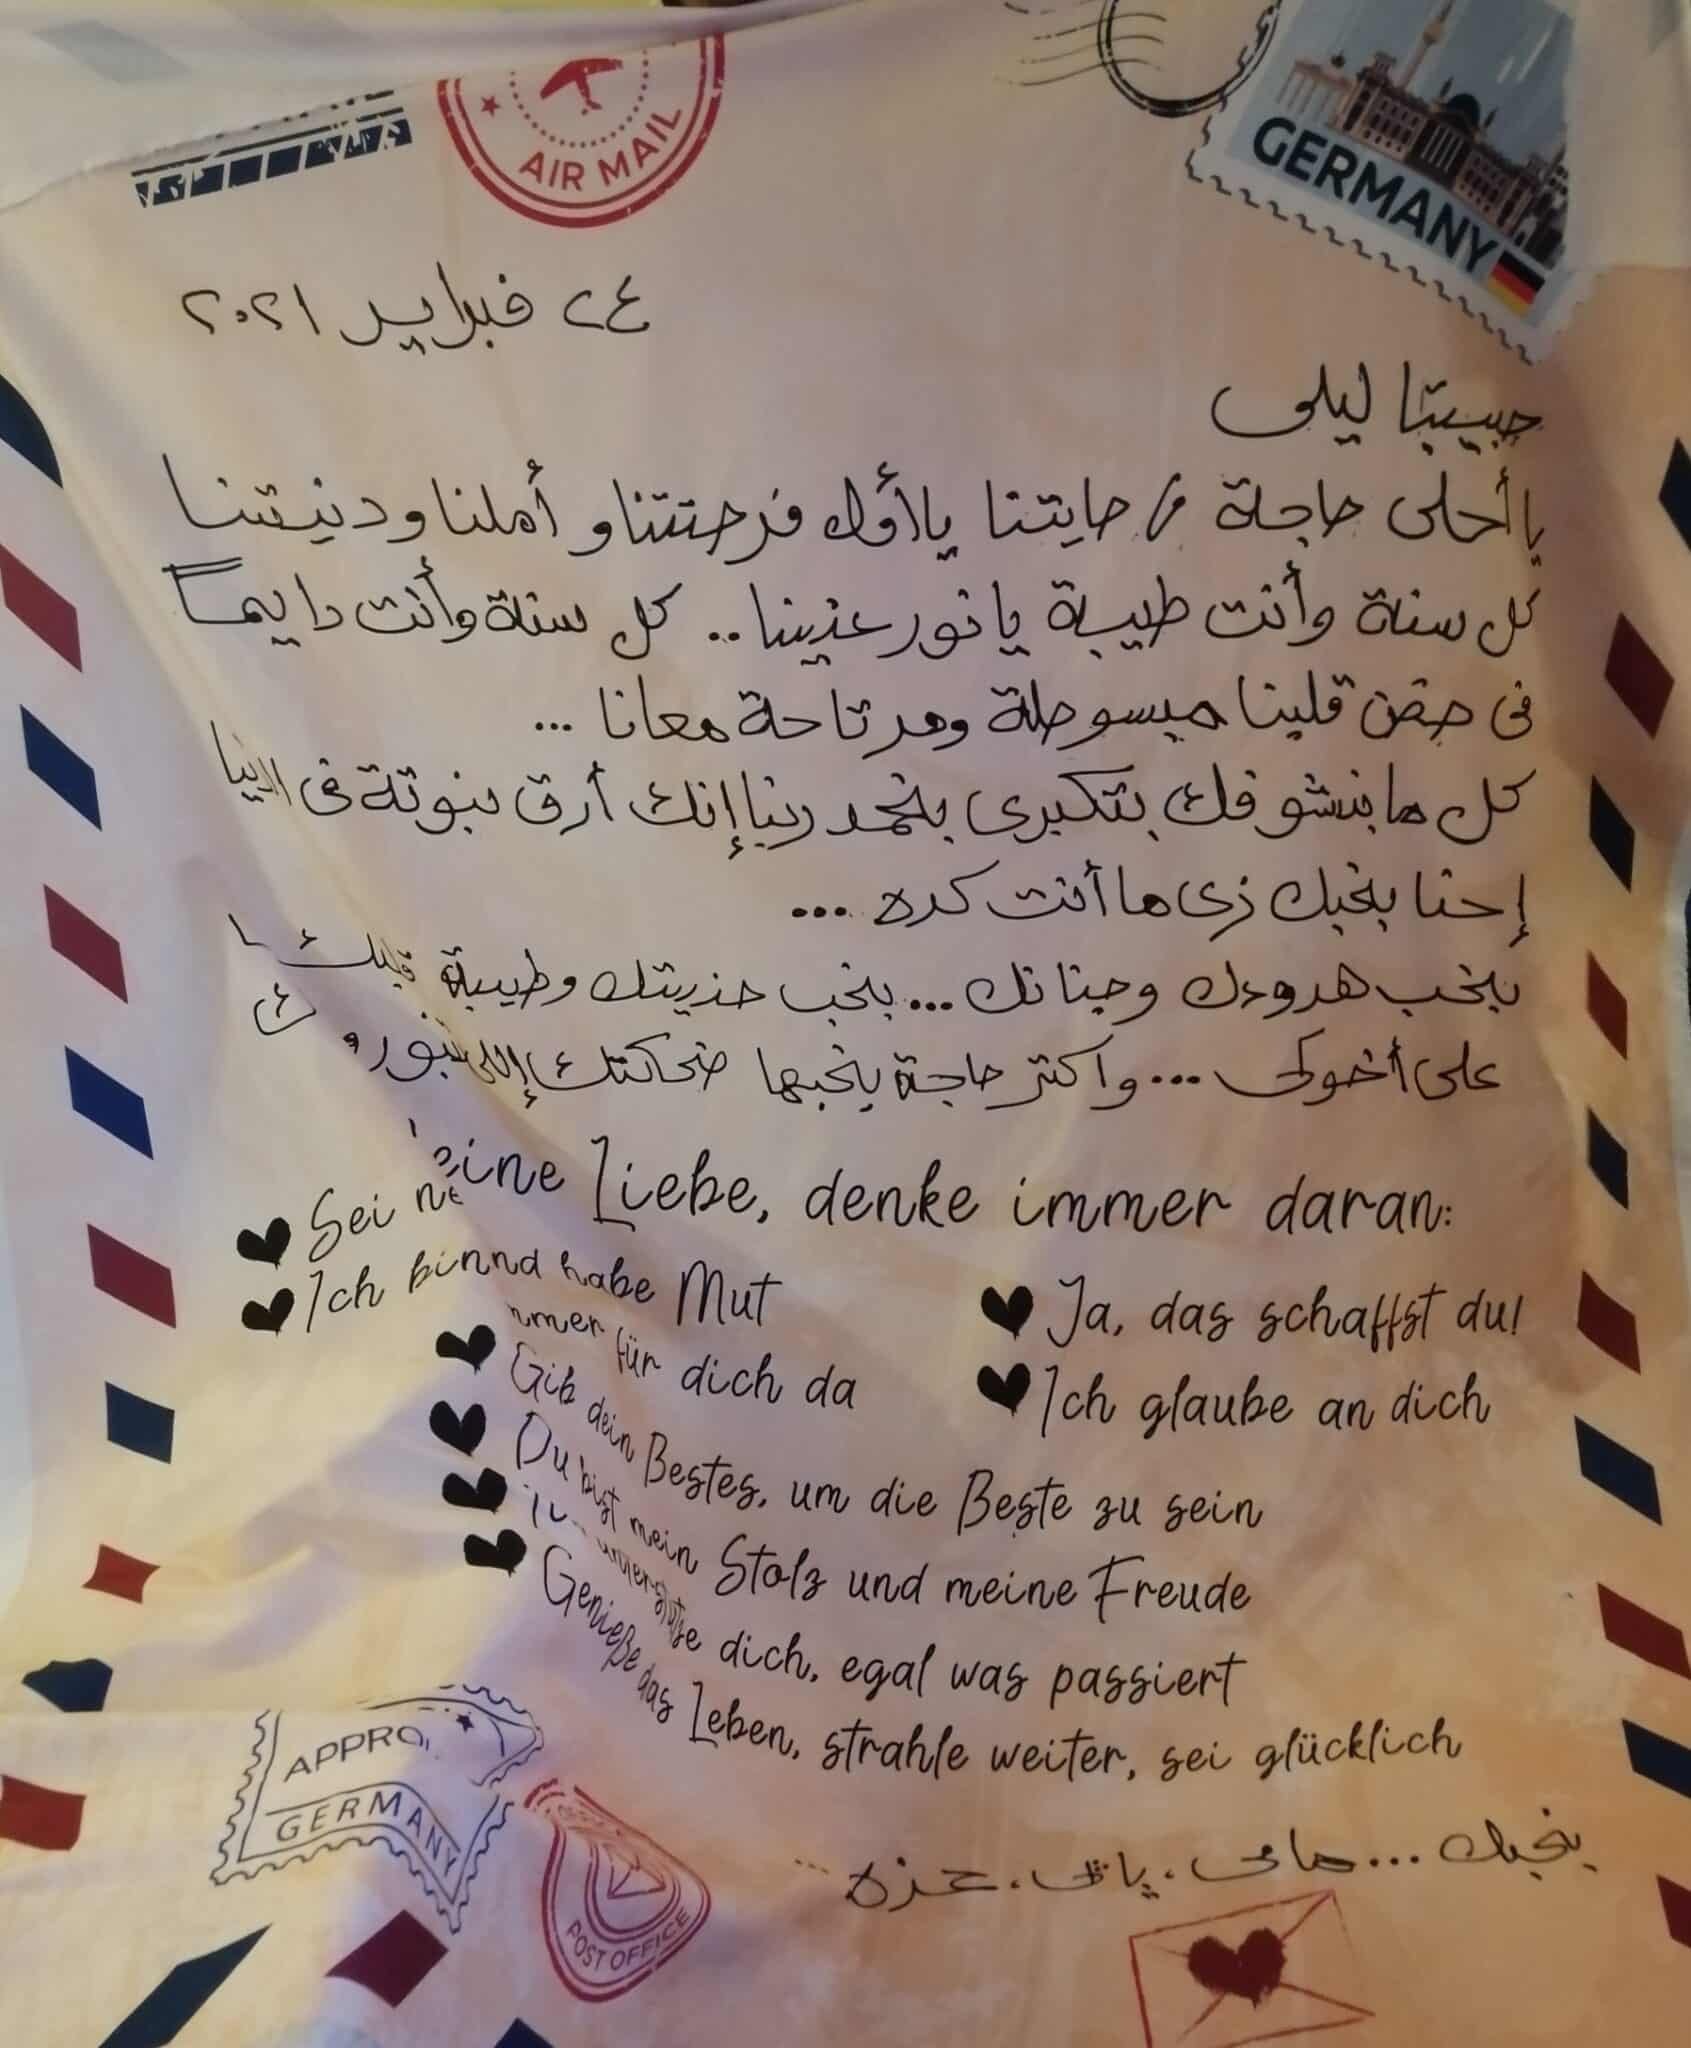 AIR MAIL
GERMANY
٢٤ فبراير ٢٠٢١
حبيبتنا ليلى
يا أحلى حاجة في حياتنا يا أول فرحتنا و أملنا و دنيتنا
كل سنة وأنت طيبة يا نور عنينا .. كل سنة وأنت دايماً
في حضن قلبنا مبسوطة ومرتاحة معانا ...
كل ما بنشوفك بتكبرى بنحمد ربنا إنك أرق بنوتة في الدنيا
إحنا بنحبك زى ما أنت كده ...
بنحب هدوءك وحنانك ... بنحب حنيتك وطيبة قلبك
على أخوكى ... وأكتر حاجة بنحبها ضحكتك إللى بتنور
Liebe, denke immer daran:
Sei und habe Mut
Ja, das schaffst du!
Ich bin immer für dich da
Ich glaube an dich
Gib dein Bestes, um die Beste zu sein
Du bist mein Stolz und meine Freude
unterstütze dich, egal was passiert
Genieße das Leben, strahle weiter, sei glücklich
APPRO
GERMANY
بنحبك ... مامى، بابى، حمزه ...
POST OFFICE